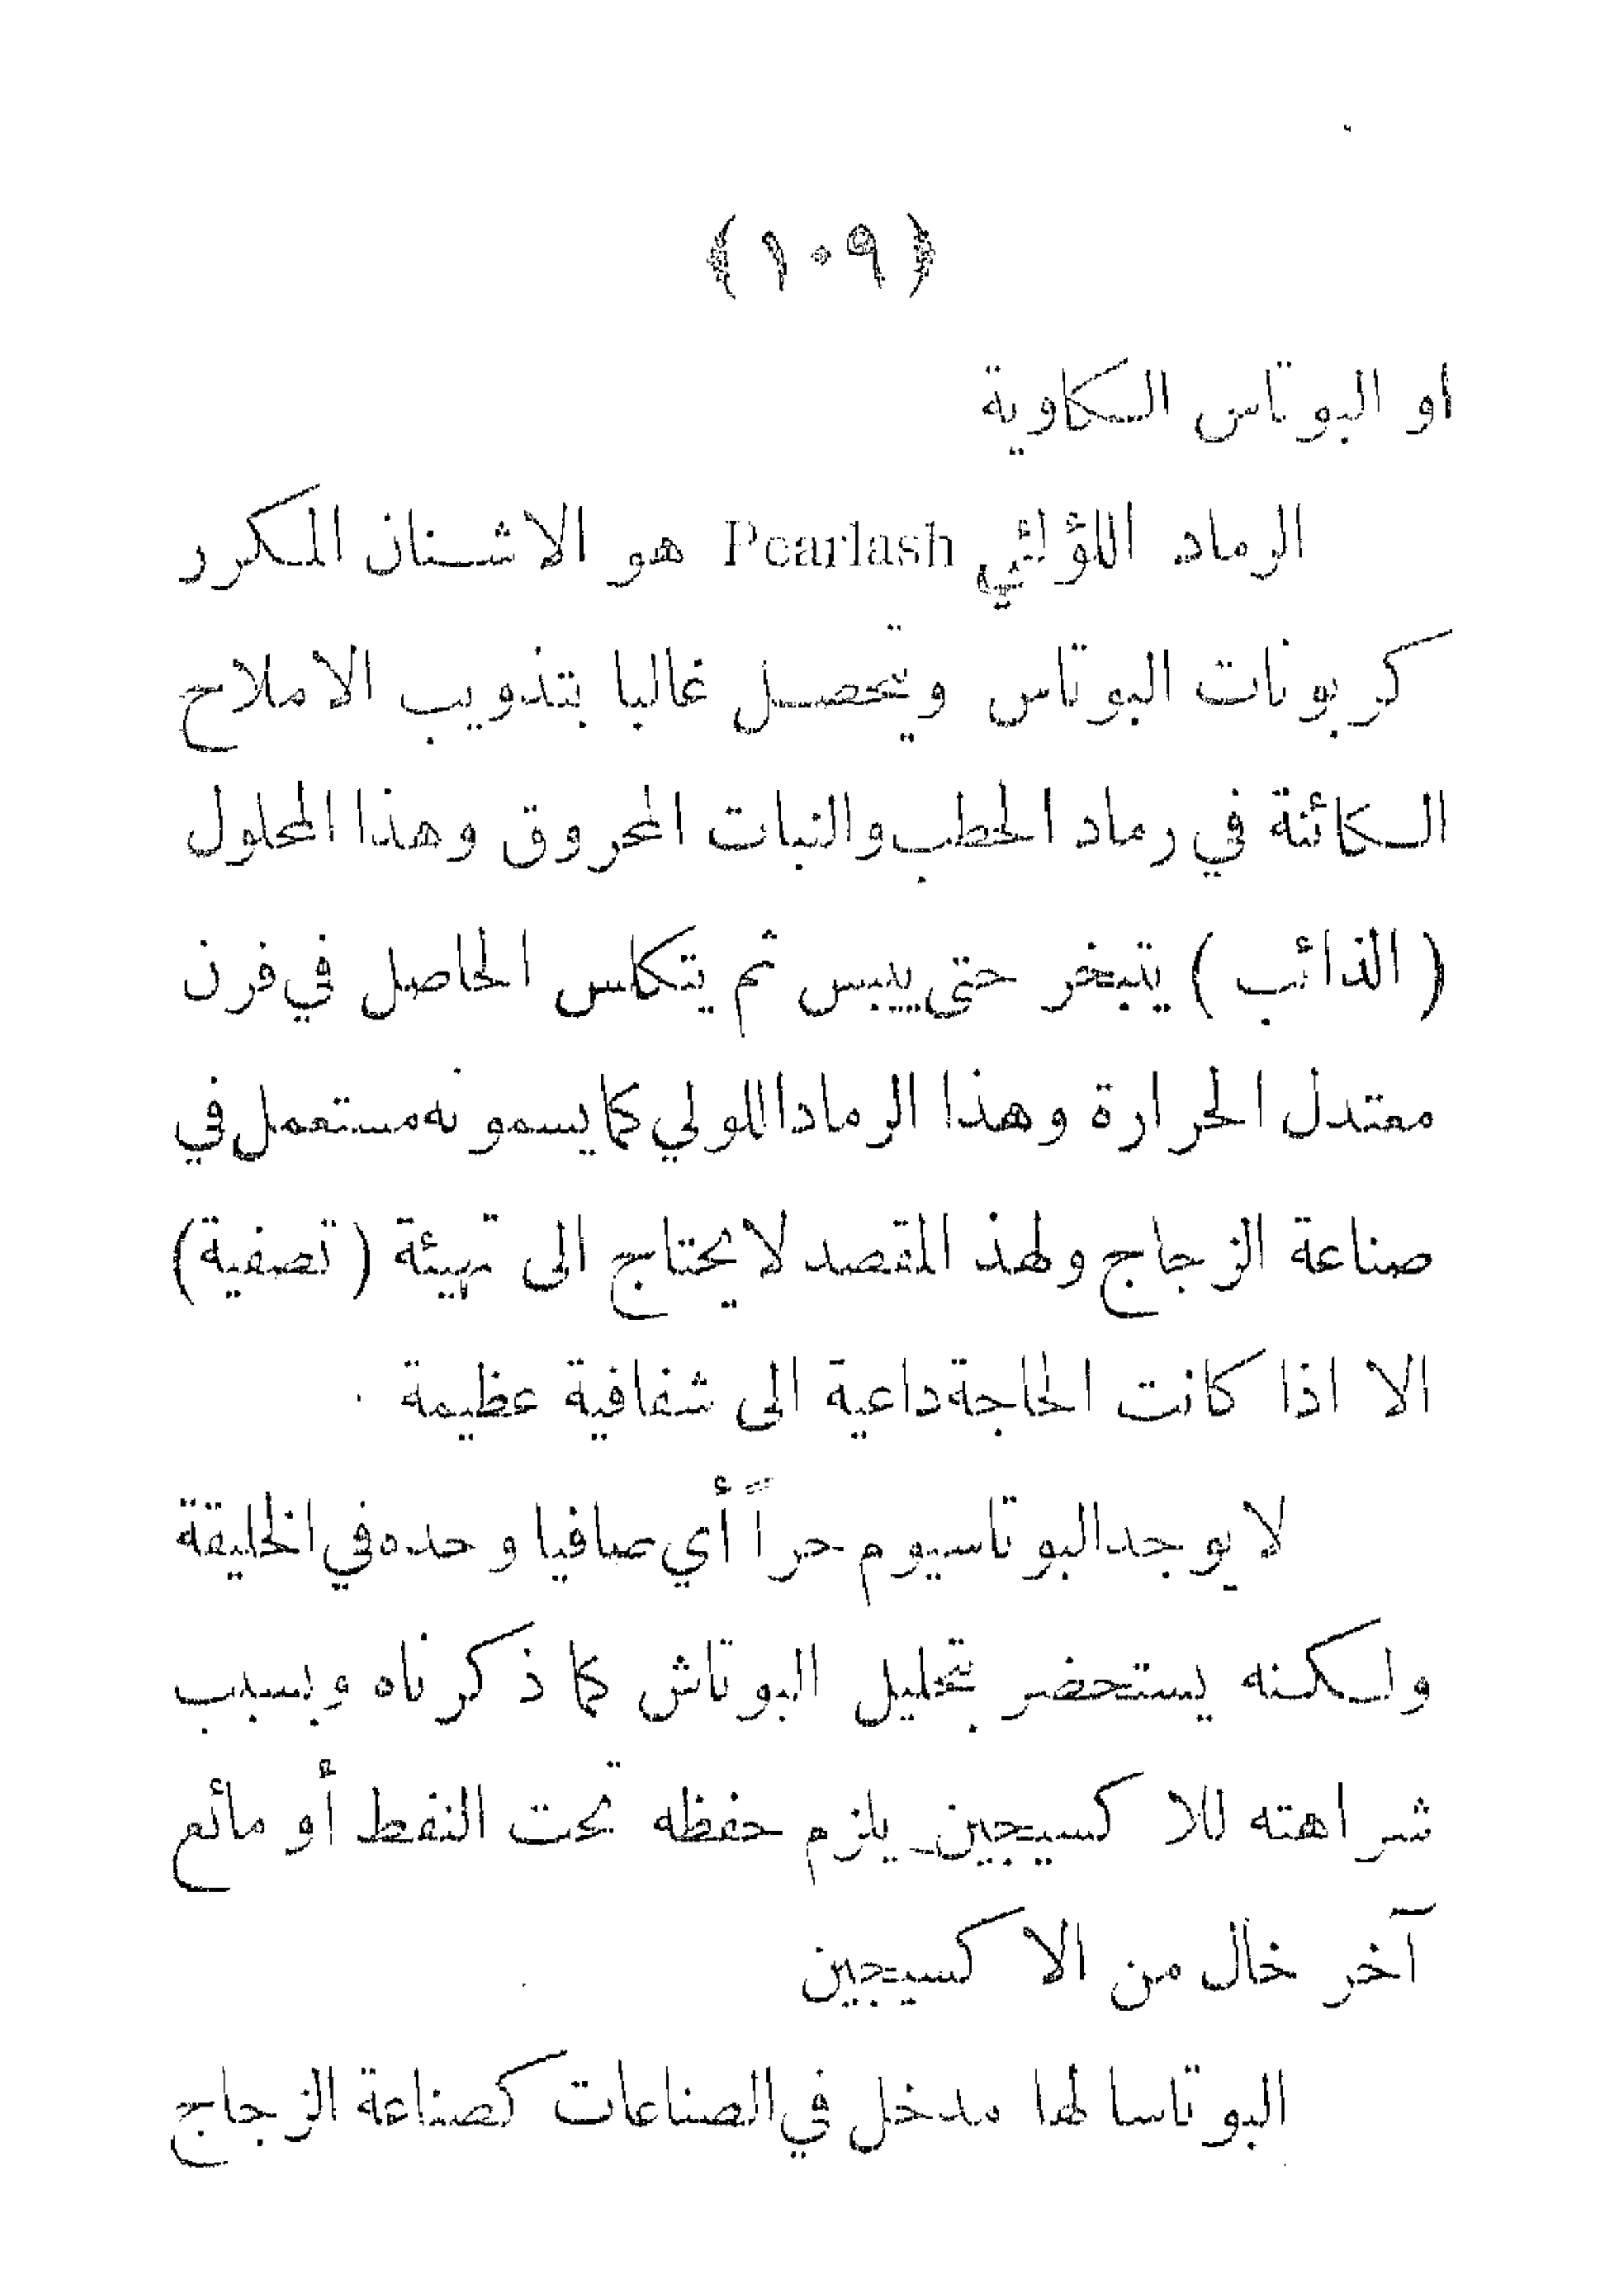 ﴿ ١٠٩ ﴾
او البوتاس الكاوية
الرماد اللؤلئي Pearlash هو الاشنان المكرر
كربونات البوتاس ويتحصل غالبا بتذويب الاملاح
الكائنة في رماد الحطب والنبات المحروق وهذا المحلول
( الذائب ) يتبخر حتى ييبس ثم يتكلس الحاصل في فرن
معتدل الحرارة وهذا الرماد اللولي كما يسمونه مستعمل في
صناعة الزجاج ولهذ المقصد لا يحتاج الى تهيئة ( تصفية )
الا اذا كانت الحاجة داعية الى شفافية عظيمة .
لا يوجد البوتاسيوم حراً أي صافيا وحده في الخليقة
ولكنه يستحضر بتحليل البوتاش كما ذكرناه وبسبب
شراهته للاكسيجين يلزم حفظه تحت النفط أو مائع
آخر خال من الاكسيجين
البوتاسا لها مدخل في الصناعات كصناعة الزجاج